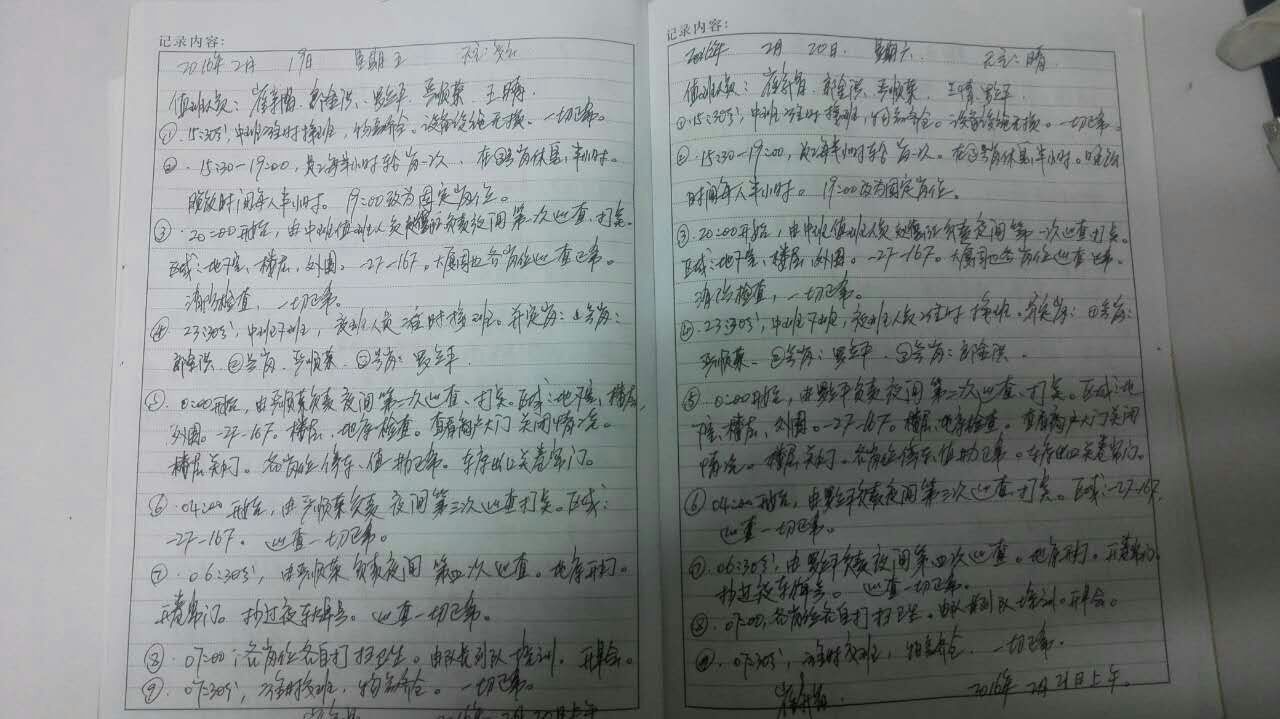 记录内容:
2016年 2月 19日 星期五 天气:
值班人员: 郭金洪、罗立平、严顺荣、王晴
① 15:30分,中班准时接班,物品齐全。设备设施无损。一切正常。
② 15:30-19:00,员工每半小时轮岗一次、在③号岗休息半小时。
晚饭时间每人半小时。19:00改为固定岗位。
③ 20:00开始,由中班值班人员负责夜间第一次巡查、打点。
区域:地下室、楼层、外围。-2F-16F。大厦周边各岗位巡查正常。
消防检查,一切正常。
④ 23:30分,中班下班,夜班人员准时接班。并定岗:①号岗:
郭金洪 ②号岗:严顺荣 ③号岗:罗立平
⑤ 0:00开始,由严顺荣负责夜间第二次巡查、打点。区域:地下室、楼层、
外围。-2F-16F。楼层、地库检查。查看商户大门关闭情况。
楼层关门。各岗位停车、值勤正常。车库出口关卷帘门。
⑥ 04:00开始,由严顺荣负责夜间第三次巡查打点。区域:
-2F-16F。巡查一切正常。
⑦ 06:30分,由严顺荣负责夜间第四次巡查。地库开门。
开卷帘门。抄过夜车牌号。巡查一切正常。
⑧ 07:00,各岗位各自打扫卫生。由队长列队培训。开早会。
⑨ 07:30分,准时交班,物品齐全。一切正常。
2016年 2月20日上午
记录内容:
2016年 2月 20日 星期六 天气:晴
值班人员: 郭金洪、严顺荣、王晴、罗立平
① 15:30分,中班准时接班,物品齐全。设备设施无损。一切正常。
② 15:30-19:00,员工每半小时轮岗一次。在③号岗休息半小时。晚饭
时间每人半小时。19:00改为固定岗位。
③ 20:00开始,由中班值班人员负责夜间第一次巡查打点。
区域:地下室、楼层、外围。-2F-16F。大厦周边各岗位巡查正常。
消防检查,一切正常。
④ 23:30分,中班下班,夜班人员准时接班。并定岗:①号岗:
严顺荣、②号岗:罗立平、③号岗:郭金洪。
⑤ 0:00开始,由罗立平负责夜间第二次巡查、打点。区域:地
下室、楼层、外围。-2F-16F。楼层、地库检查。查看商户大门关闭
情况。楼层关门。各岗位停车、值勤正常。车库出口关卷帘门。
⑥ 04:00开始,由罗立平负责夜间第三次巡查打点。区域:-2F-16F,
巡查一切正常。
⑦ 06:30分,由罗立平负责夜间第四次巡查。地库开门。开卷帘门。
抄过夜车牌号。巡查一切正常。
⑧ 07:00,各岗位各自打扫卫生。由队长列队培训。开早会。
⑨ 07:30分,准时交班,物品齐全、一切正常。
2016年 2月21日上午。